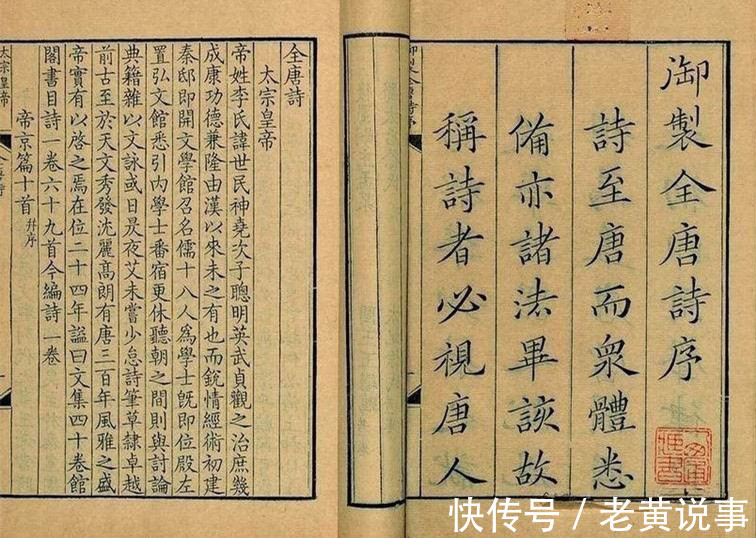 御製全唐詩序
詩至唐而衆體悉
備亦諸法畢該故
稱詩者必視唐人
全唐詩
太宗皇帝
帝姓李氏諱世民神堯次子聰明英武貞觀之治庶幾
成康功德兼隆由漢以來未之有也而銳情經術初建
秦邸即開文學館召名儒十八人爲學士既即位殿左
置弘文館悉引內學士番宿更休聽朝之間則與討論
典籍雜以文詠或日昃夜艾未嘗少怠詩筆草隸卓越
前古至於天文秀發沈麗高朗有唐三百年風雅之盛
帝實有以啓之焉在位二十四年諡曰文集四十卷館
閣書目詩一卷六十九首今編詩一卷
帝京篇十首 并序
太宗皇帝
快传号 / 老黄说事